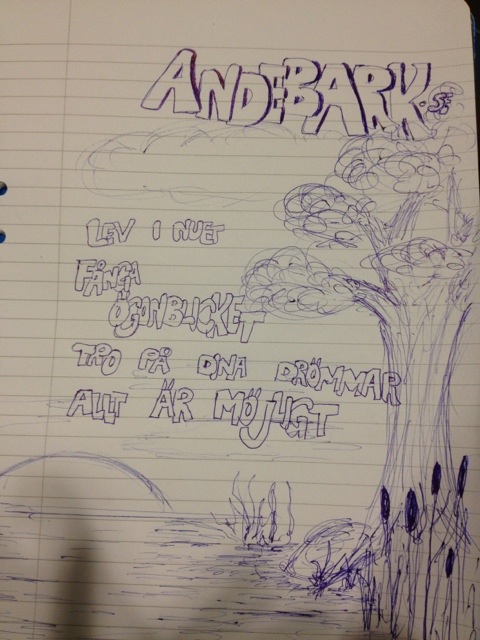 ANDEBARK.SE
LEV I NUET
FÅNGA
ÖGONBLICKET
TRO PÅ DINA DRÖMMAR
ALLT ÄR MÖJLIGT